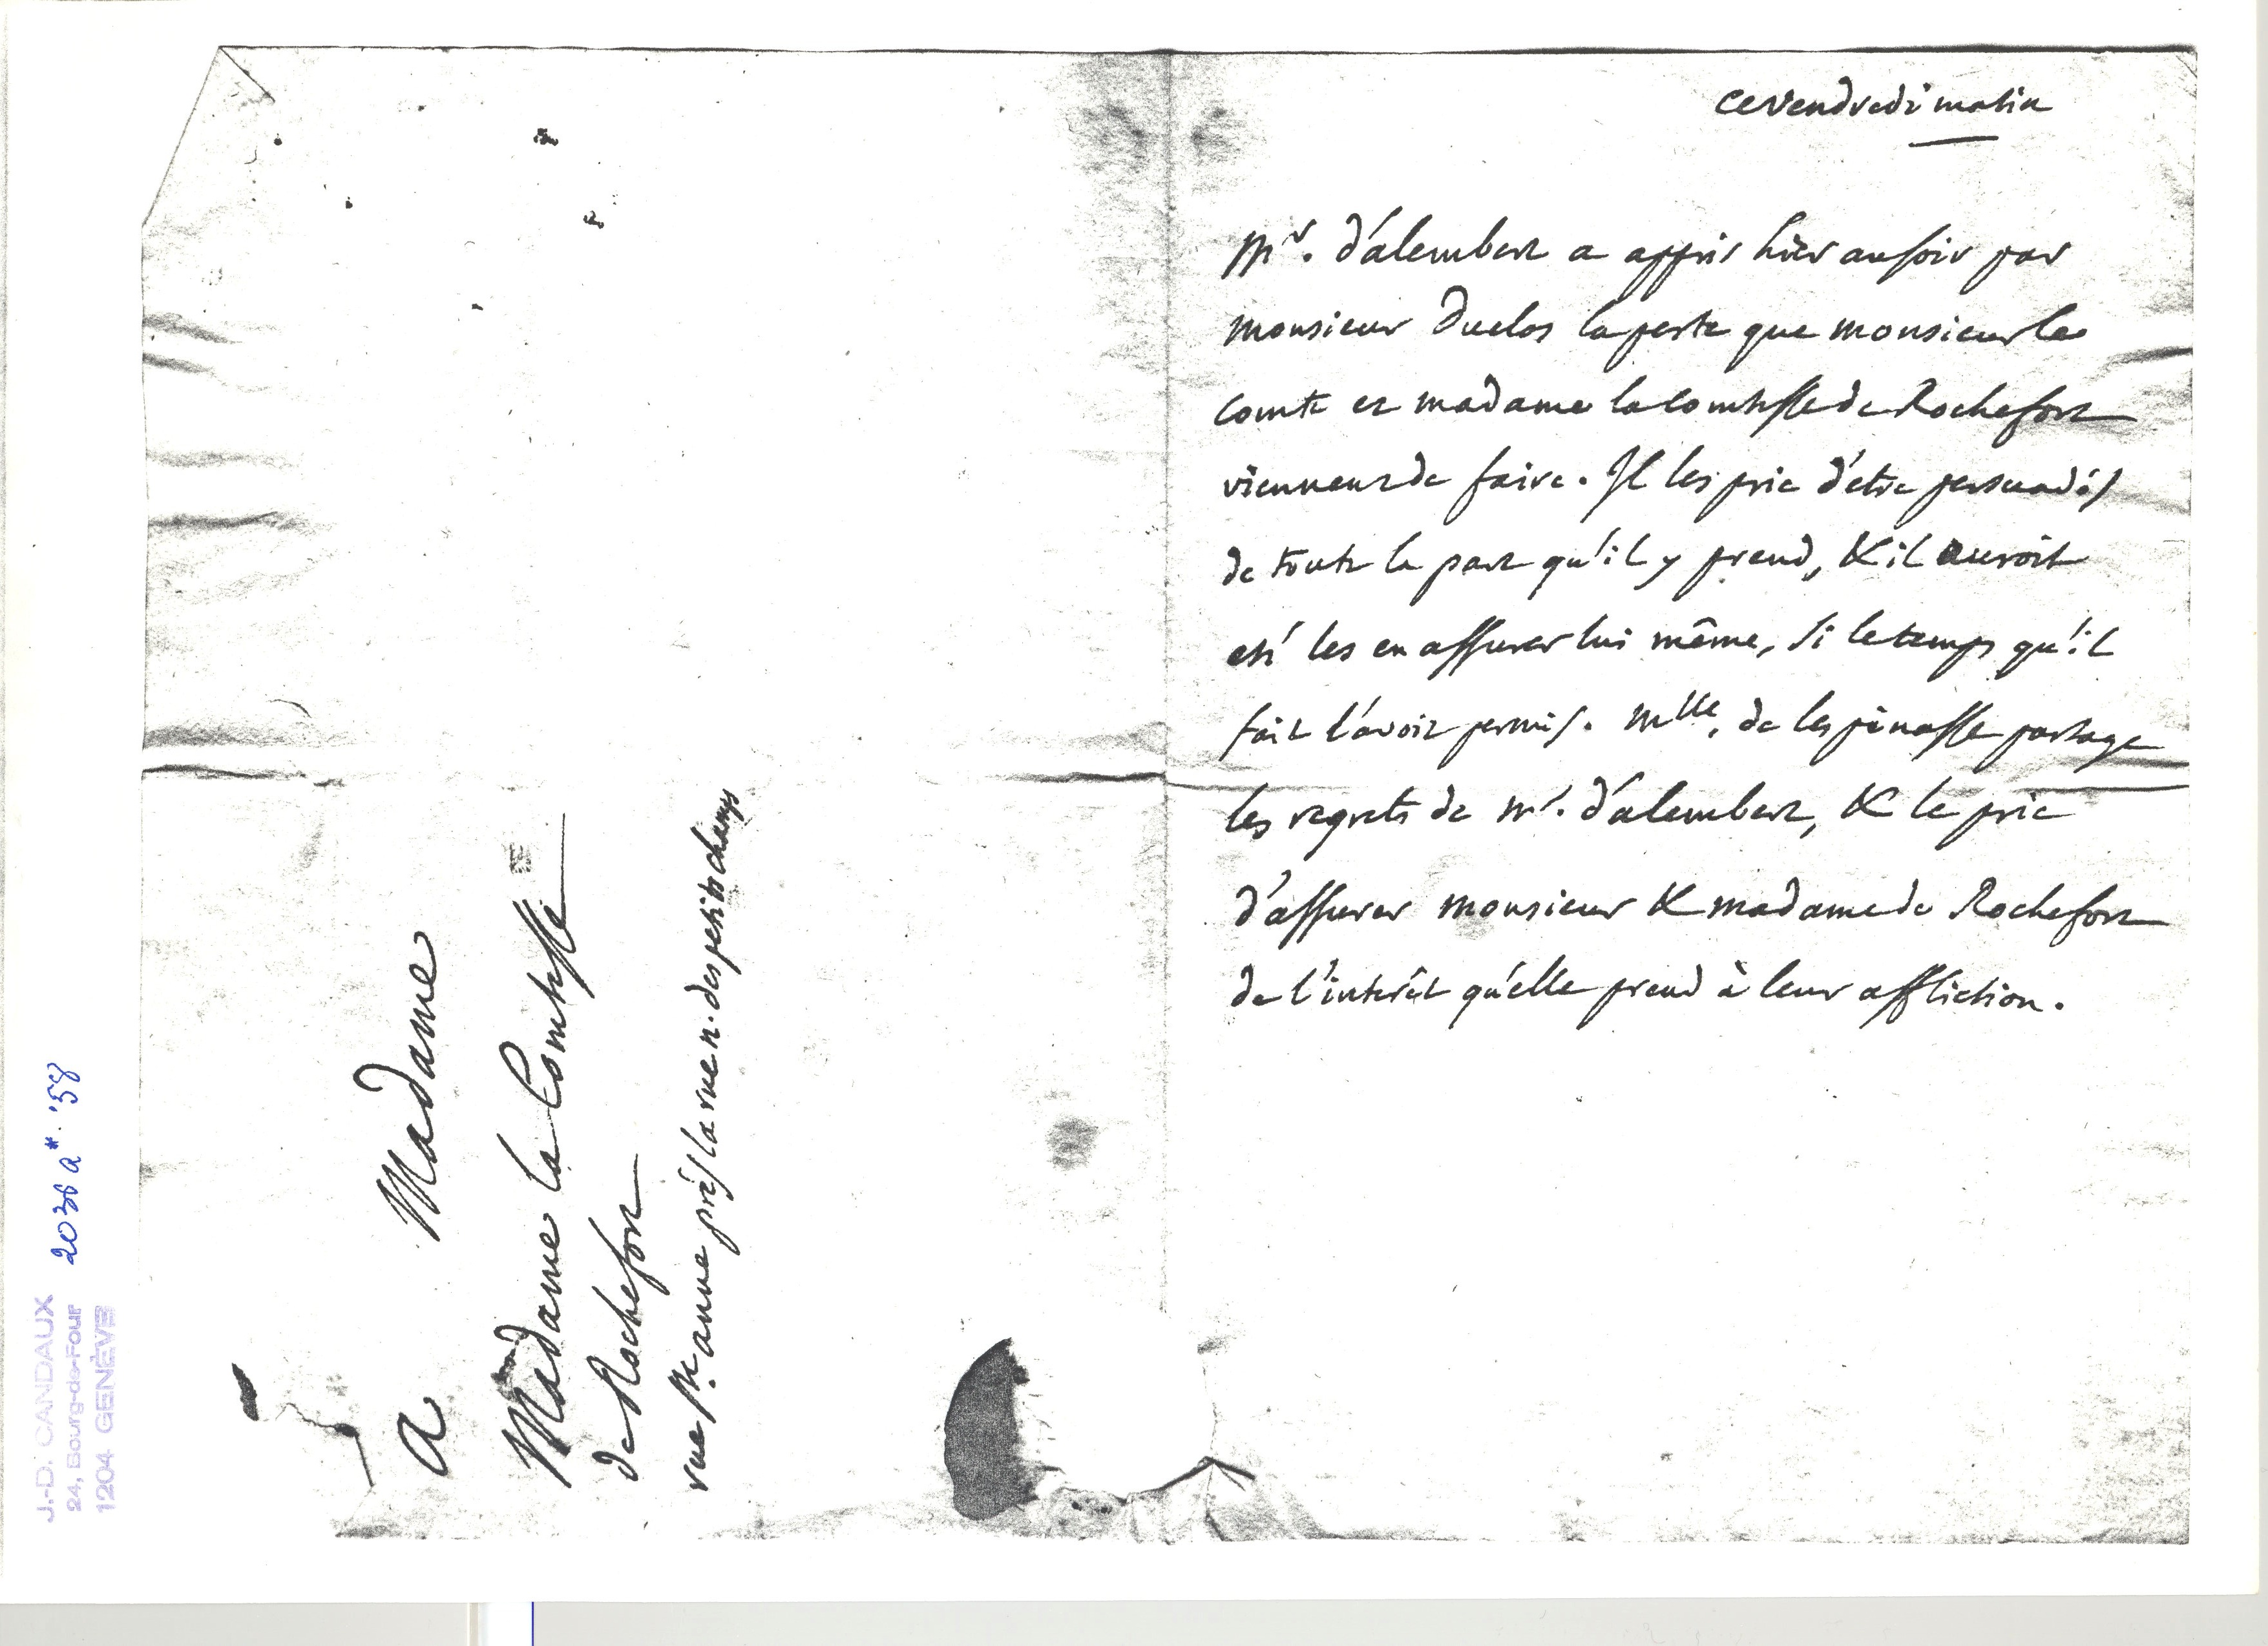 ce vendredi matin
Mr. d'alembert a appris hier au soir par
monsieur Duclos la perte que monsieur le
comte et madame la comtesse de Rochefort
viennent de faire. Il les prie d'être persuadés
de toute la part qu'il y prend, & il auroit
été les en assurer lui même, si le temps qu'il
fait l'avoit permis. Mlle. de lespinasse partage
les regrets de Mr. d'alembert, & le prie
d'assurer monsieur & madame de Rochefort
de l'interêt qu'elle prend à leur affliction.
A Madame
Madame la Comtesse
de Rochefort
rue Ste. anne près la rue n. des petits champs
2036 a*. '58
J.-D. CANDAUX
24, Bourg-de-Four
1204 GENÈVE